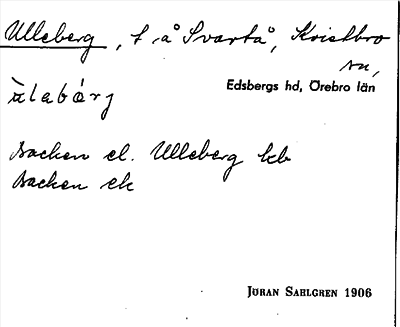 Ulleberg, t. å Svartå, Kvistbro
sn,
Edsbergs hd, Örebro län
backen el. Ulleberg kb
backen ek
JÖRAN SAHLGREN 1906